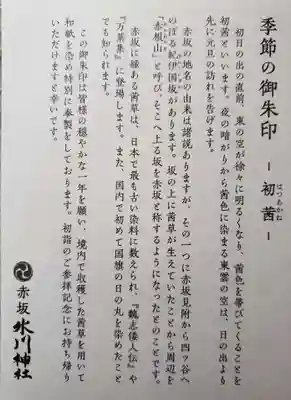 季節の御朱印 ー 初茜 ー
はつあかね
初日の出の直前、東の空が徐々に明るくなり、茜色を帯びてくることを
初茜といいます。夜の暗がりから茜色に染まる東雲の空は、日の出より
先に元旦の訪れを告げます。
赤坂の地名の由来は諸説ありますが、その一つに赤坂見附から四ッ谷へ
のぼる紀伊国坂があります。坂の上に茜草が生えていたことから周辺を
「赤根山」と呼び、そこへ上る坂を赤坂と称するようになったとのことです。
赤坂に縁ある茜草は、日本で最も古い染料に数えられ、『魏志倭人伝』や
『万葉集』に登場します。また、国内で初めて国旗の日の丸を染めたこと
でも知られます。
この御朱印は皆様の穏やかな一年を願い、境内で収穫した茜草を用いて
和紙を染め特別に奉製をしております。初詣のご参拝記念にお持ち帰り
いただけますと幸いです。
赤坂 氷川神社